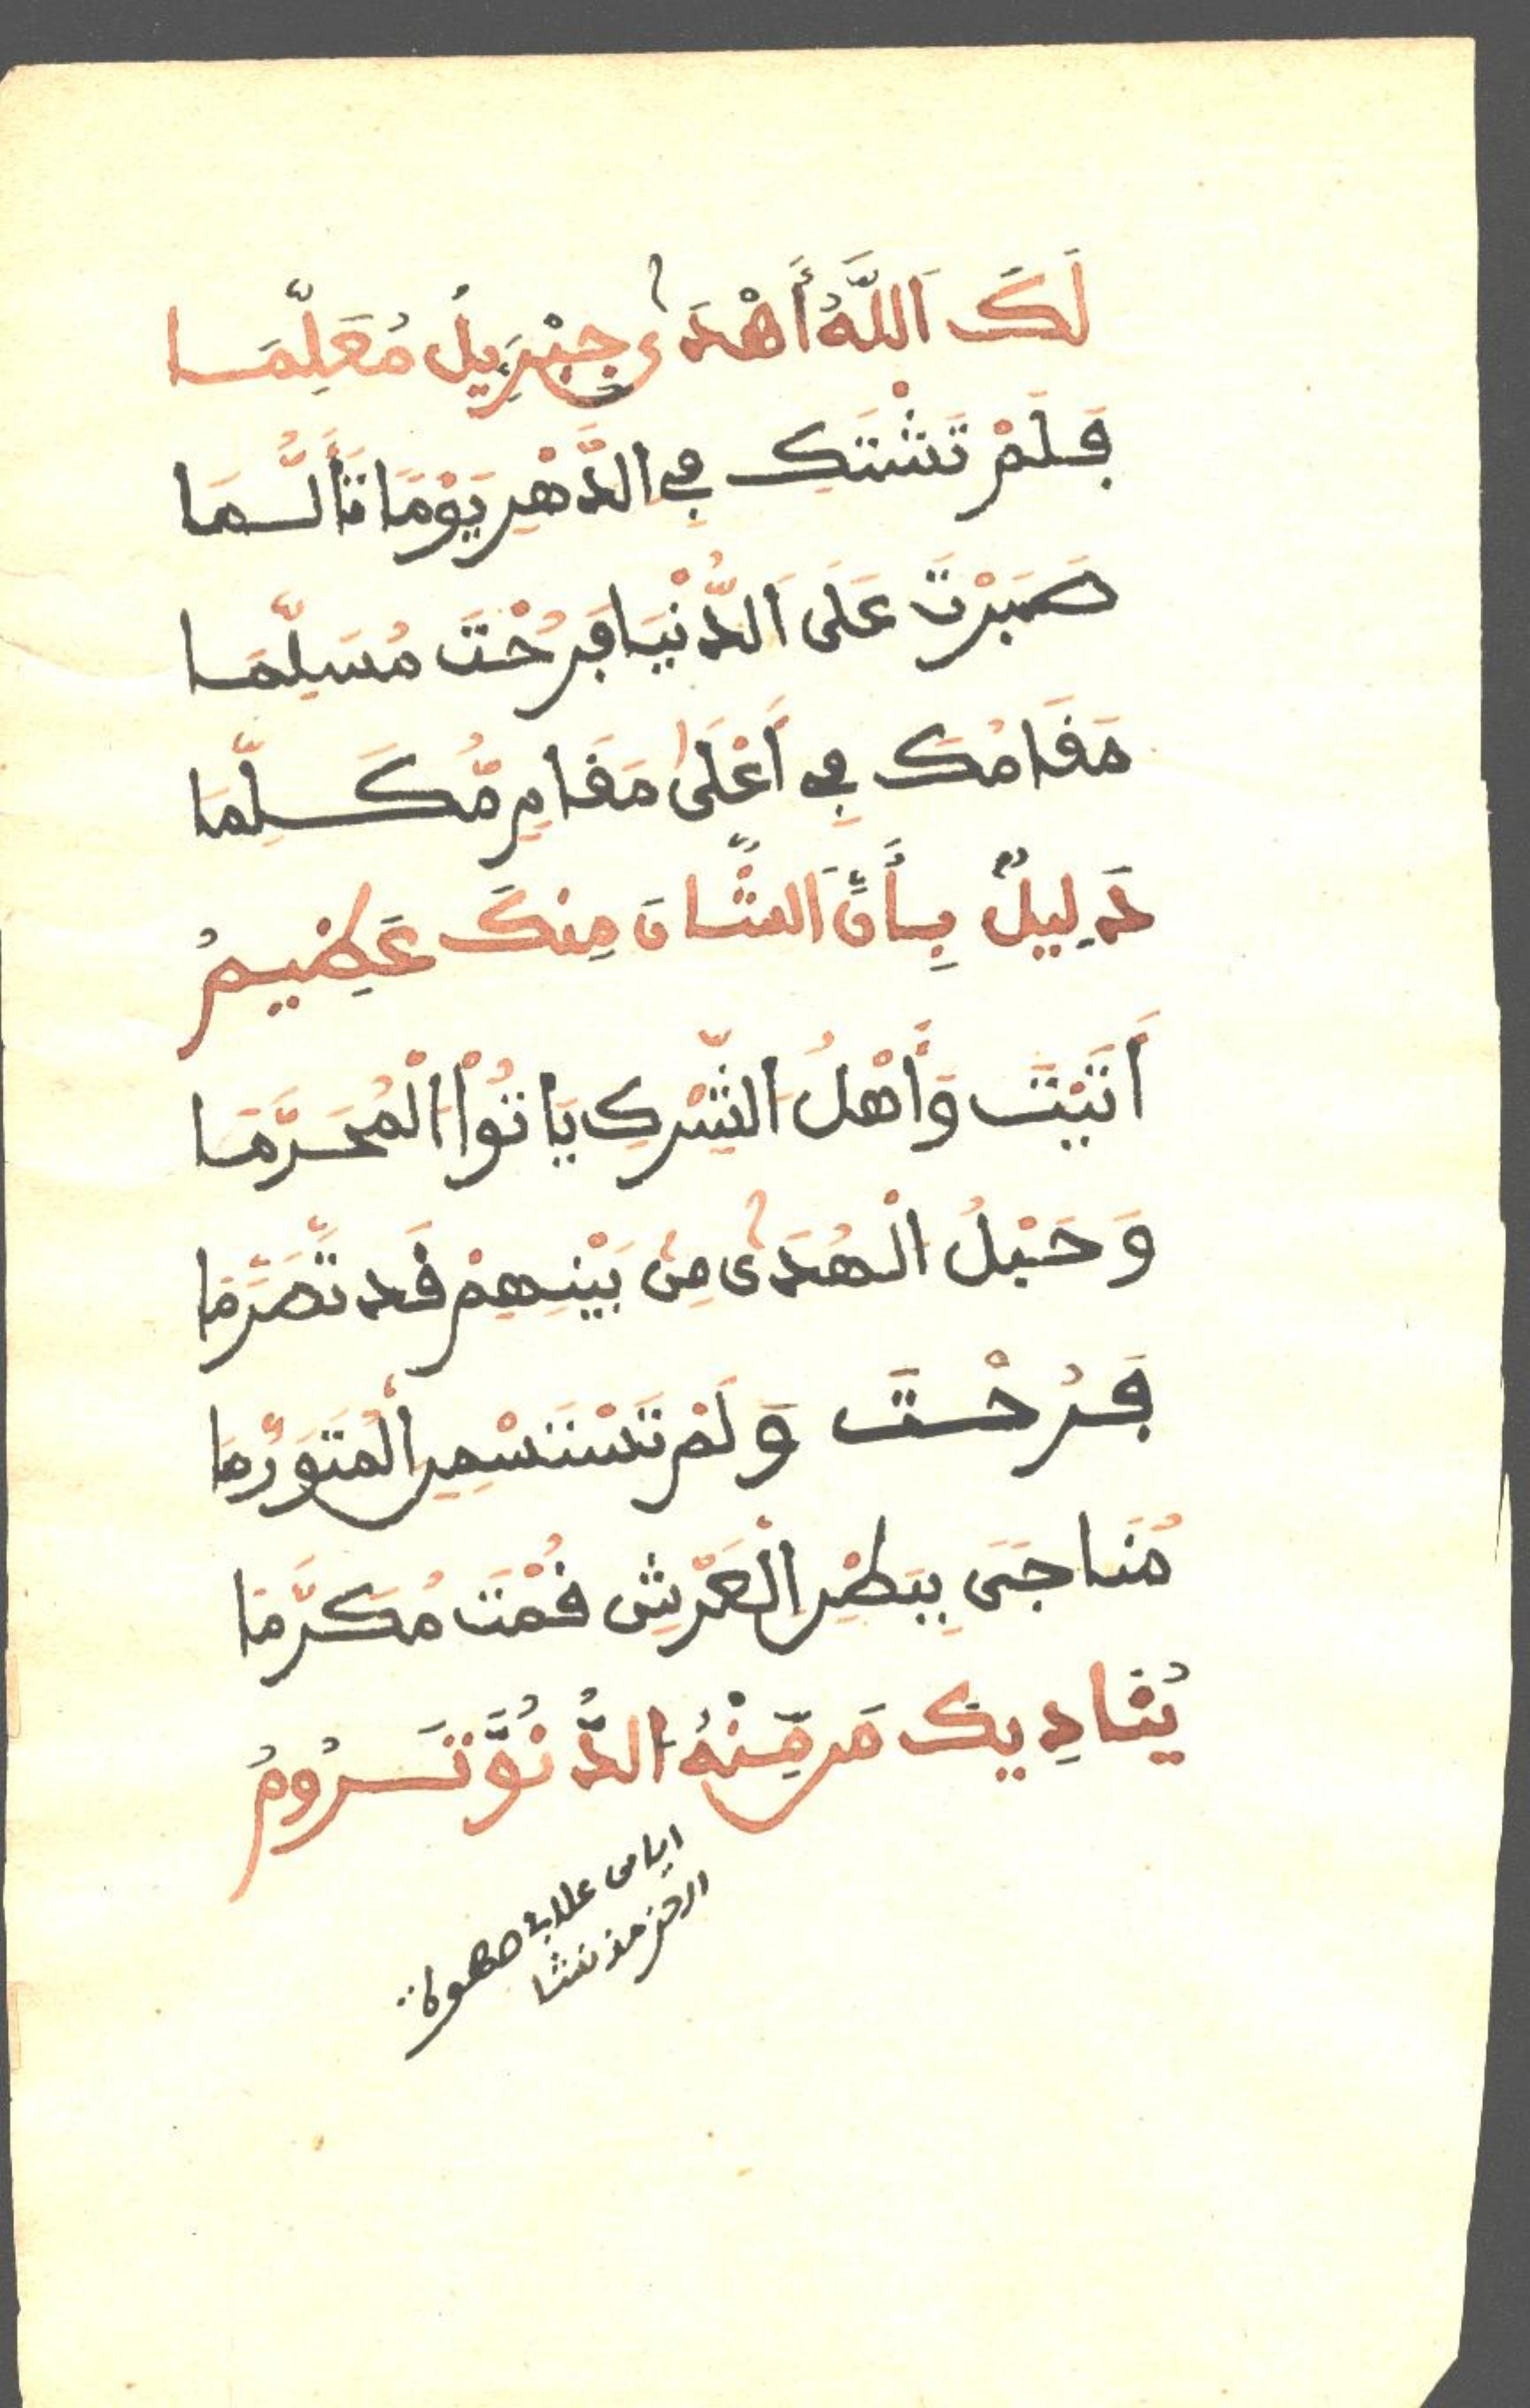 لَكَ اَللَّهُ أَهْدَى جِبْرِيلُ مُعَلِّمَا
فَلَمْ تَشْتَكِ فِي الدَّهْرِ يَوْمًا تَأَلُّمَا
صَبَرْتَ عَلَى اَلدُّنْيَا فَرُحْتَ مُسَلِّمَا
مَقَامُكَ فِي أَعْلَى مَقَامٍ مُّكَلِّمَا
دَلِيلٌ بِأَنَّ اَلشَّانَ مِنكَ عَظِيمُ
أَتَيْتَ وَأَهْلُ الشِّرْكِ يَاتُواْ الْمُحَرَّمَا
وَحَبْلُ الْهُدَى مِن بَيْنِهِمْ قَد تَّصَرَّمَا
فَرُحْتَ وَلَمْ تَسْتَسْمِنِ الْمُتَوَرِّمَا
مُنَاجَى بِبَطْنِ الْعَرْشِ قُمْتَ مُكَرَّمَا
يُنَادِيكَ مَن مِّنْهُ الدُّنُوَّ تَرُومُ